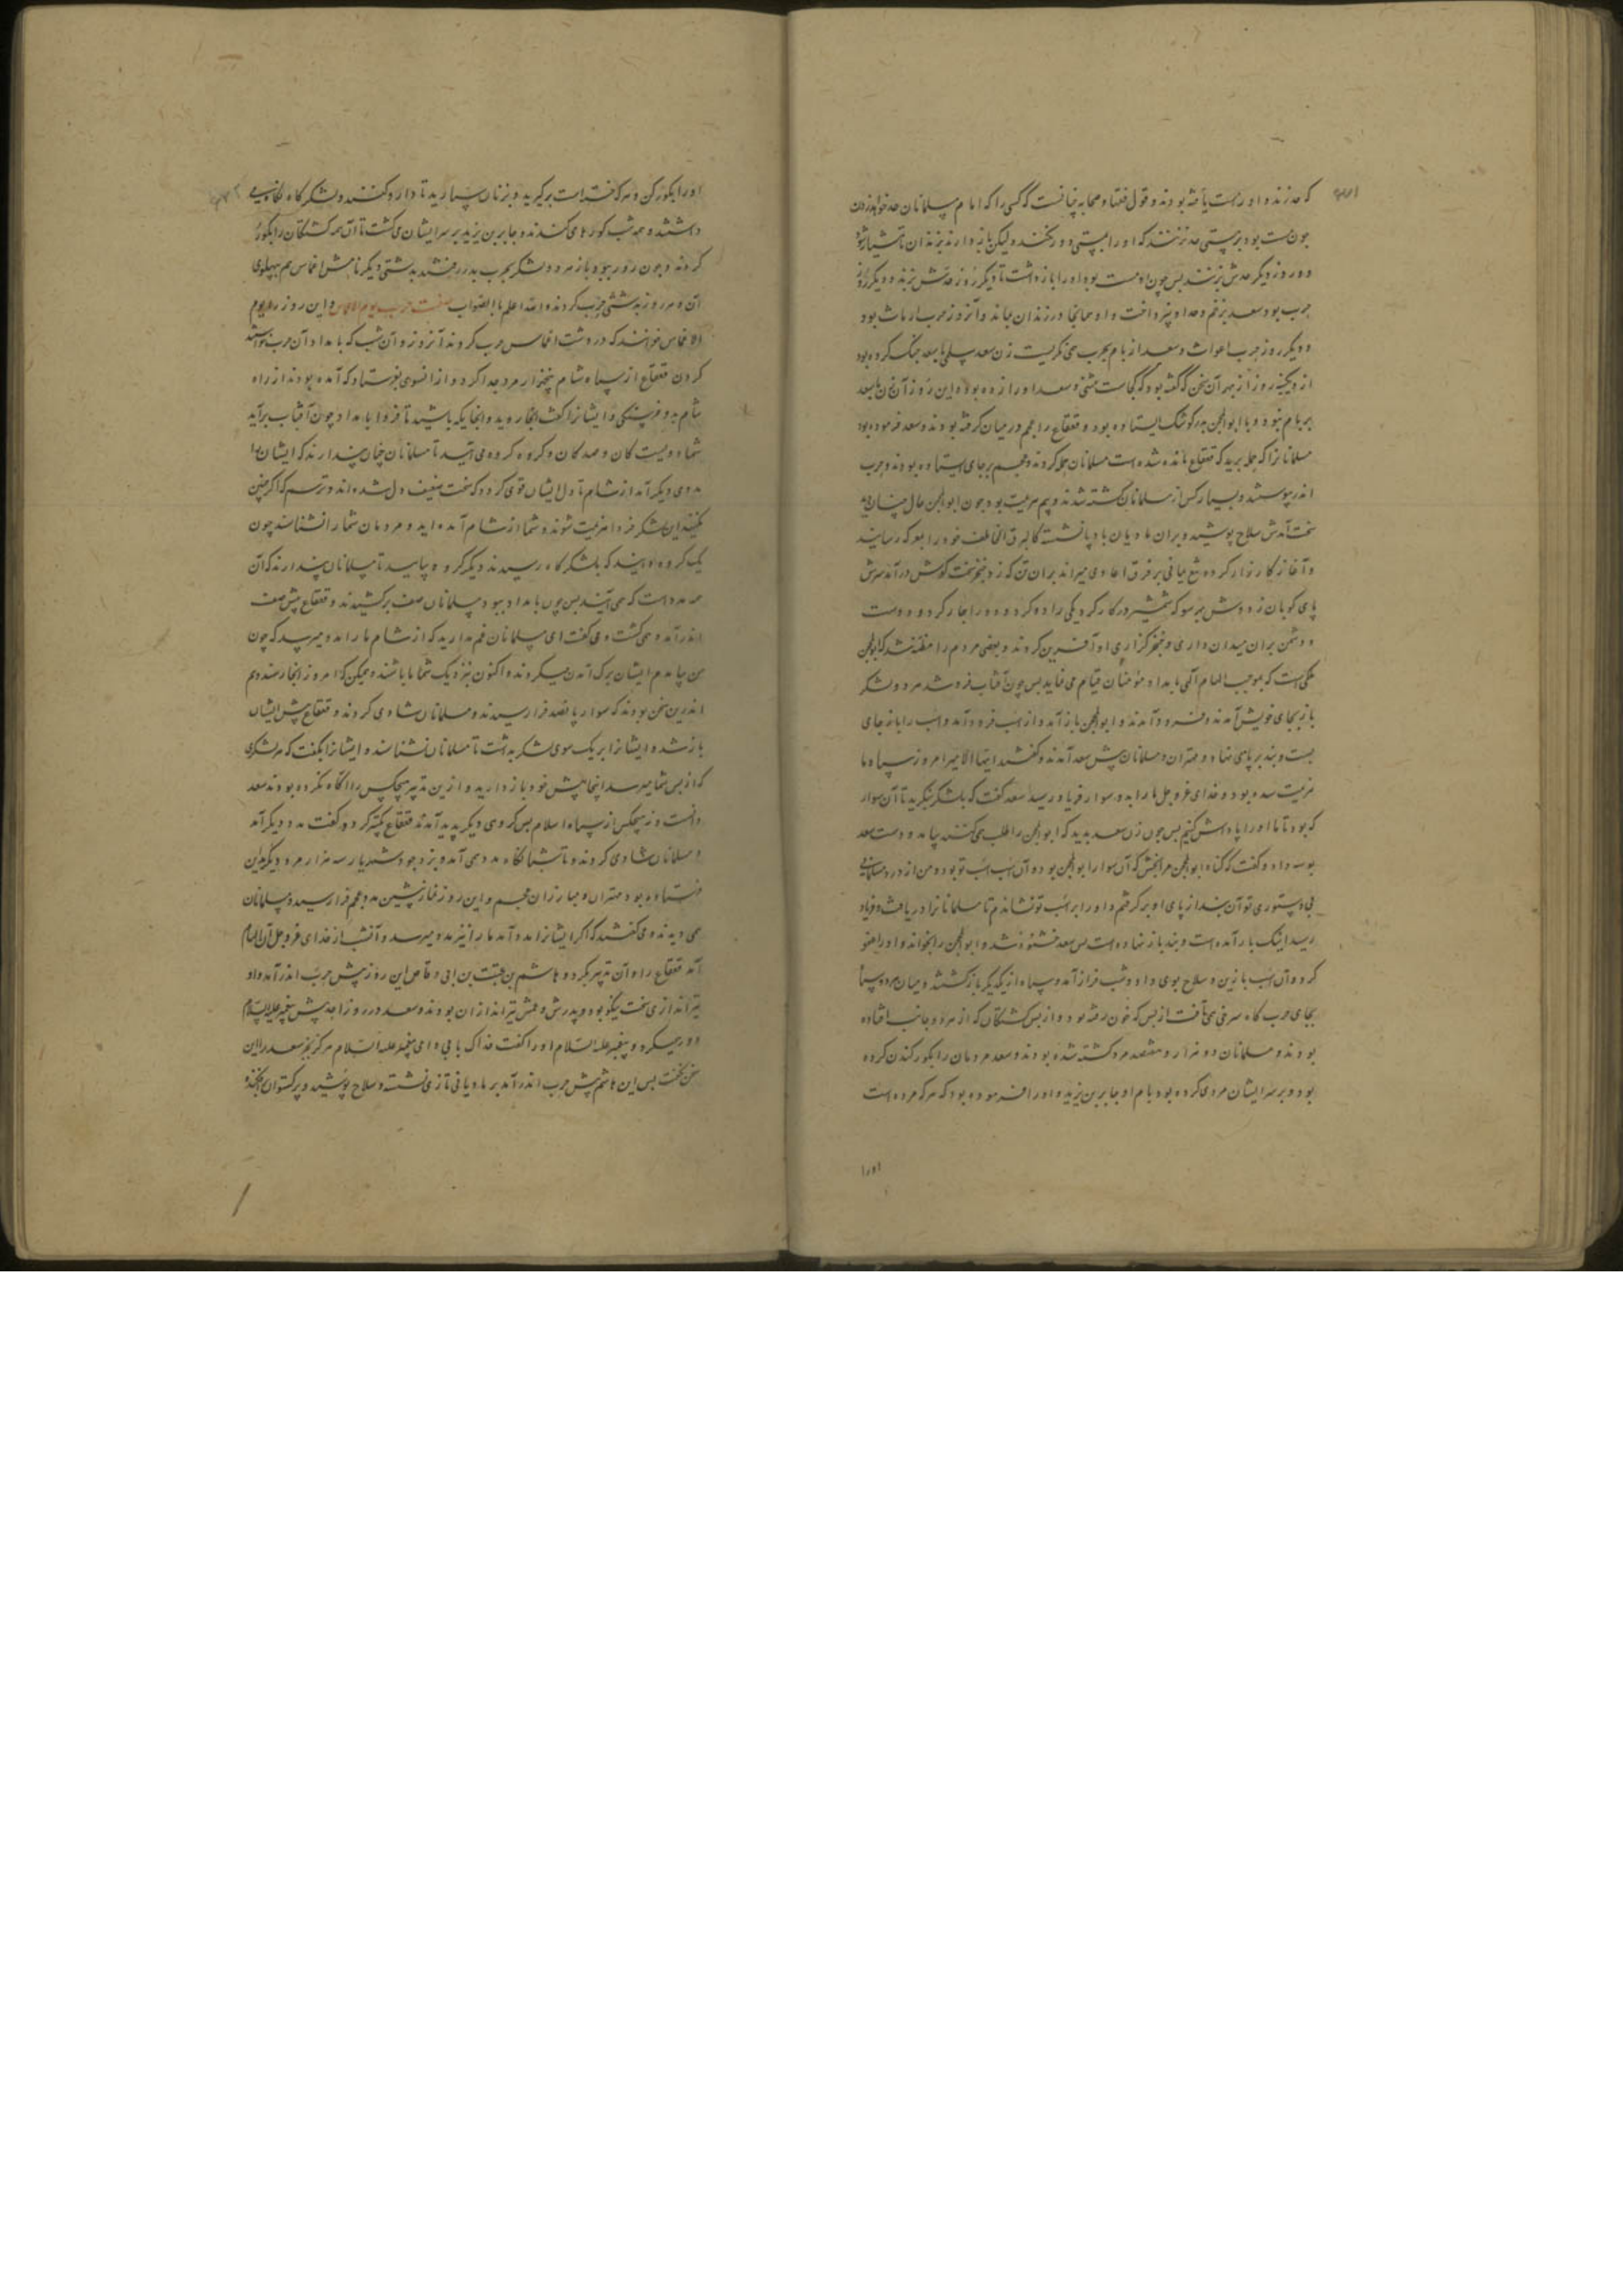 که حد زند و او را مست یافته بودند و قول فقها و صحابه چنانست که کسی را که امام مسلمانان حد خواهد زدن
چون مست بود بر مستی حد نزنند که او را مستی دور نکند و لیکن باز دارند بزندان تا هشیار شود
و روز دیگر حدش بزنند پس چون او مست بود او را باز داشت تا دیگر روز حدش بزند و دیگر روز
حرب بود سعد بزخم و حد او نپرداخت و او همانجا در زندان بماند و آنروز حرب ارماث بود
و دیگر روز حرب اغواث و سعد از بام بحرب همی نگریست زن سعد سلمی با سعد جنگ کرده بود
از دیکینه روز از بهر آن سخن که گفته بود که کجاست مثنی و سعد او را زده بود و این روز آن زن با سعد
بر بام نبود و با ابوالمحجن بدر کوشک ایستاده بود و قعقاع را عجم در میان گرفته بودند و سعد فرموده بود
مسلمانانرا که حمله برید که قعقاع مانده شده است مسلمانان حمله کردند و عجم بر جای ایستاده بودند و حرب
اندر پیوستند و بسیار کس از مسلمانان کشته شدند و بیم هزیمت بود چون ابوالمحجن حال چنان دید
سخت آمدش سلاح پوشید و بران مادیان باد پا نشسته کالبرق الخاطف خود را بمعرکه رسانید
و آغاز کارزار کرده تیغ یمانی بر فرق اعادی میراند بران تن که زد خنجر سخت کوش درآمد سرش
پای کوبان ز دوش بهر سو که شمشیر در کار کرد یکی را دو کرد و دو را چار کرد و دوست
و دشمن بران میدان داری و خنجر گزاری او آفرین کردند و بعضی مردم را مظنه شد که ابوالمحجن
ملکی است که بموجب الهام آلهی بامداد مؤمنان قیام می نماید پس چون آفتاب فرو شد هر دو لشکر
باز بجای خویش آمدند و فرود آمدند و ابوالمحجن باز آمد و از اسب فرود آمد و اسب را باز جای
بست و بند بر پای نهاد و مهتران و مسلمانان پیش سعد آمدند و گفتند ایها الامیر امروز سپاه ما
هزیمت شده بود و خدای عزوجل ما را بدو سوار فریاد رسید سعد گفت که بلشکر بنگرید تا آن سوار
که بود تا ما او را پاداش کنیم پس چون زن سعد بدید که ابوالمحجن را طلب می کنند بیامد و دست سعد
بوسه داد و گفت که گناه ابوالمحجن مرا بخش که آن سوار ابوالمحجن بود و آن اسب اسب تو بود و من از درد مسلمانی
بی دستوری تو آن بند از پای او برگرفتم و او را بر اسب تو نشاندم تا مسلمانانرا دریافت و فریاد
رسید اینک باز آمده است و بند باز نهاده است پس سعد خشنود شد و ابوالمحجن را بخواند و او را عفو
کرد و آن اسب با زین و سلاح بوی داد و شب فراز آمد و سپاه از یکدیگر بازگشتند و میان هر دو سپاه
بجای حرب گاه سرخی همی تافت از بس که خون رفته بود و از بس کشتگان که از هر دو جانب افتاده
بودند و مسلمانان دو هزار و هفتصد مرد کشته شده بودند و سعد مردمان را بگور کندن کرده
بود و بر سر ایشان مردی کرده بود بنام او جابر بن یزید و او را فرموده بود که هر که مرده است
او را
او را بگور کن و هر که خسته است برگیرید و بزنان سپارید تا دارو کنند و لشکرگاه نگاه همی
داشتند و همه شب گورها می کندند و جابر بن یزید بر سر ایشان می گشت تا آن همه کشتگان را بگور
کردند و چون روز ببود باز هر دو لشکر بحرب بدر رفتند بدشتی دیگر نامش اغماس هم پهلوی
آن و هر روز بدشتی حرب کردند والله اعلم بالصواب صفت حرب یوم الاغماس و این روز را یوم
الاغماس خوانند که در دشت اغماس حرب کردند آنروز و آن شب که بامداد آن حرب خواستند
کردن قعقاع از سپاه شام پنجهزار مرد جدا کرد و از آنسوی بفرستاد که آمده بودند از راه
شام بدو فرسنگی و ایشانرا گفت آنجا روید و آنجایگه باشید تا فردا بامداد چون آفتاب برآید
شما دویست کان و صد کان و گروه گروه می آئید تا مسلمانان چنان پندارند که ایشان را
مددی دیگر آمد از شام تا دل ایشان قوی گردد که سخت ضعیف دل شده اند و ترسم که اگر چنین
نکنید این لشکر فردا هزیمت شوند و شما از شام آمده اید و مردمان شما را نشناسند چون
یک گروه بینید که بلشکرگاه رسیدند دیگر گروه بیایید تا مسلمانان پندارند که آن
همه مدد است که همی آیند پس چون بامداد ببود مسلمانان صف برکشیدند و قعقاع پیش صف
اندر آمد و همی گشت و می گفت ای مسلمانان غم مدارید که از شام ما را مدد میرسد که چون
من بیامدم ایشان برگ آمدن میکردند و اکنون بنزدیک شما باشند و ممکن که امروز اینجا رسند و هم
اندرین سخن بودند که سوار پانصد فرا رسیدند و مسلمانان شادی کردند و قعقاع پیش ایشان
باز شد و ایشانرا بر یک سوی لشکر بداشت تا مسلمانان نشناسند و ایشانرا بگفت که هر لشکری
که از پس شما میرسد اینجا پیش خود باز دارید و ازین تدبیر هیچکس را آگاه نکرده بود نه سعد
دانست و نه هیچکس از سپاه اسلام پس گروهی دیگر پدید آمدند قعقاع تکبیر کرد و گفت مدد دیگر آمد
و مسلمانان شادی کردند و تا شبانگاه مدد همی آمد و یزدجرد شهریار سه هزار مرد دیگر بدان
فرستاده بود مهتران و مبارزان عجم و این روز نماز پیشین مدد عجم فرا رسید و مسلمانان
همی دیدند و می گفتند که اگر ایشانرا مدد آمد ما را نیز مدد میرسد و آنشب از خدای عزوجل آن الهام
آمد قعقاع را و آن تدبیر بکرد و هاشم بن عتبت بن ابی وقاص این روز پیش حرب اندر آمد و او
تیراندازی سخت نیکو بود و پدرش و عمش تیراندازان بودند و سعد در روز احد پیش پیغمبر علیه السلام
دور میکرد و پیغمبر علیه السلام او را گفت فداک بابی و امی پیغمبر علیه السلام هرگز بجز سعد را این
سخن نگفت پس این هاشم پیش حرب اندر آمد بر مادیانی تازی نشسته و سلاح پوشید و برگستوان افکنده